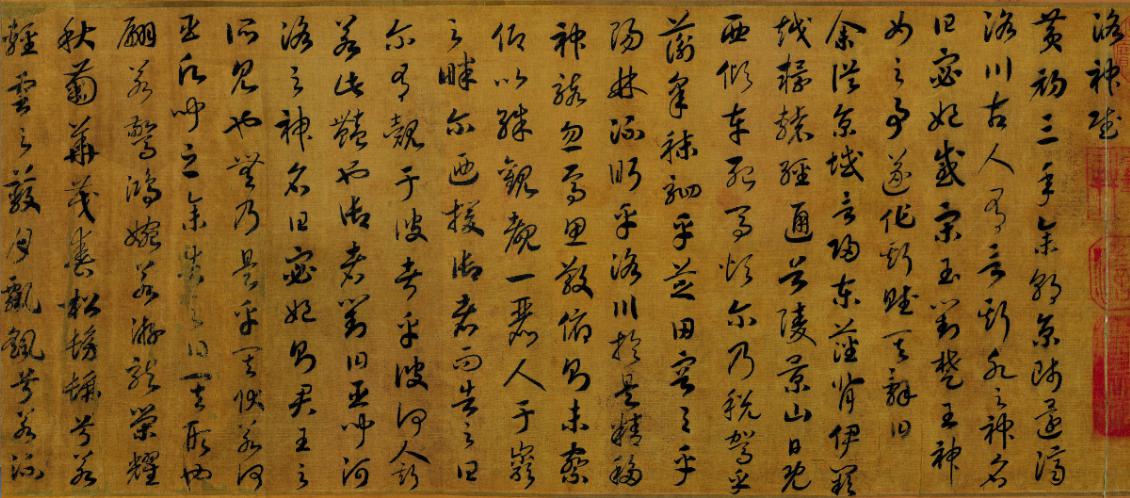 洛神賦
黄初三年余朝京師還濟
洛川古人有言斯水之神名
曰宓妃感宋玉對楚王神
女之事遂作斯賦其辭曰
余從京域言歸東藩背伊闕
越轘轅經通谷陵景山日既
西傾車殆馬煩尔乃税駕乎
蘅皋秣駟乎芝田容與乎
陽林流眄乎洛川於是精移
神駭忽焉思散俯則未察
仰以殊觀覩一麗人于巖
之畔尔迺援御者而告之曰
尔有覿于彼者乎彼何人斯
若此豔也御者對曰臣聞河
洛之神名曰宓妃則君王之
所見也無乃是乎其狀若何
臣願聞之余告之曰其形也
翩若驚鴻婉若游龍榮曜
秋菊華茂春松髣髴兮若
輕雲之蔽月飄飖兮若流